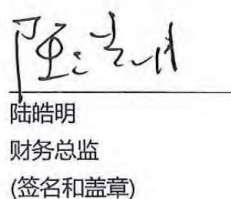 陆皓明
财务总监
(签名和盖章)